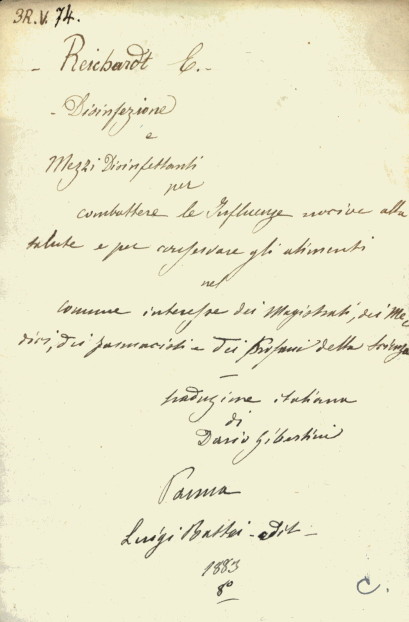 3R.V. 74.
- Reichardt E. -
- Disinfezione
e
Mezzi Disinfettanti
per
combattere le Influenze nocive alla
salute e per conservare gli alimenti
nel
comune interesse dei Magistrati, dei Me-
dici, dei farmacisti e dei Profani della Scienza
—
traduzione italiana
di
Dario Gibertini
Parma
Luigi Battei - edit -
1883
8º
C.